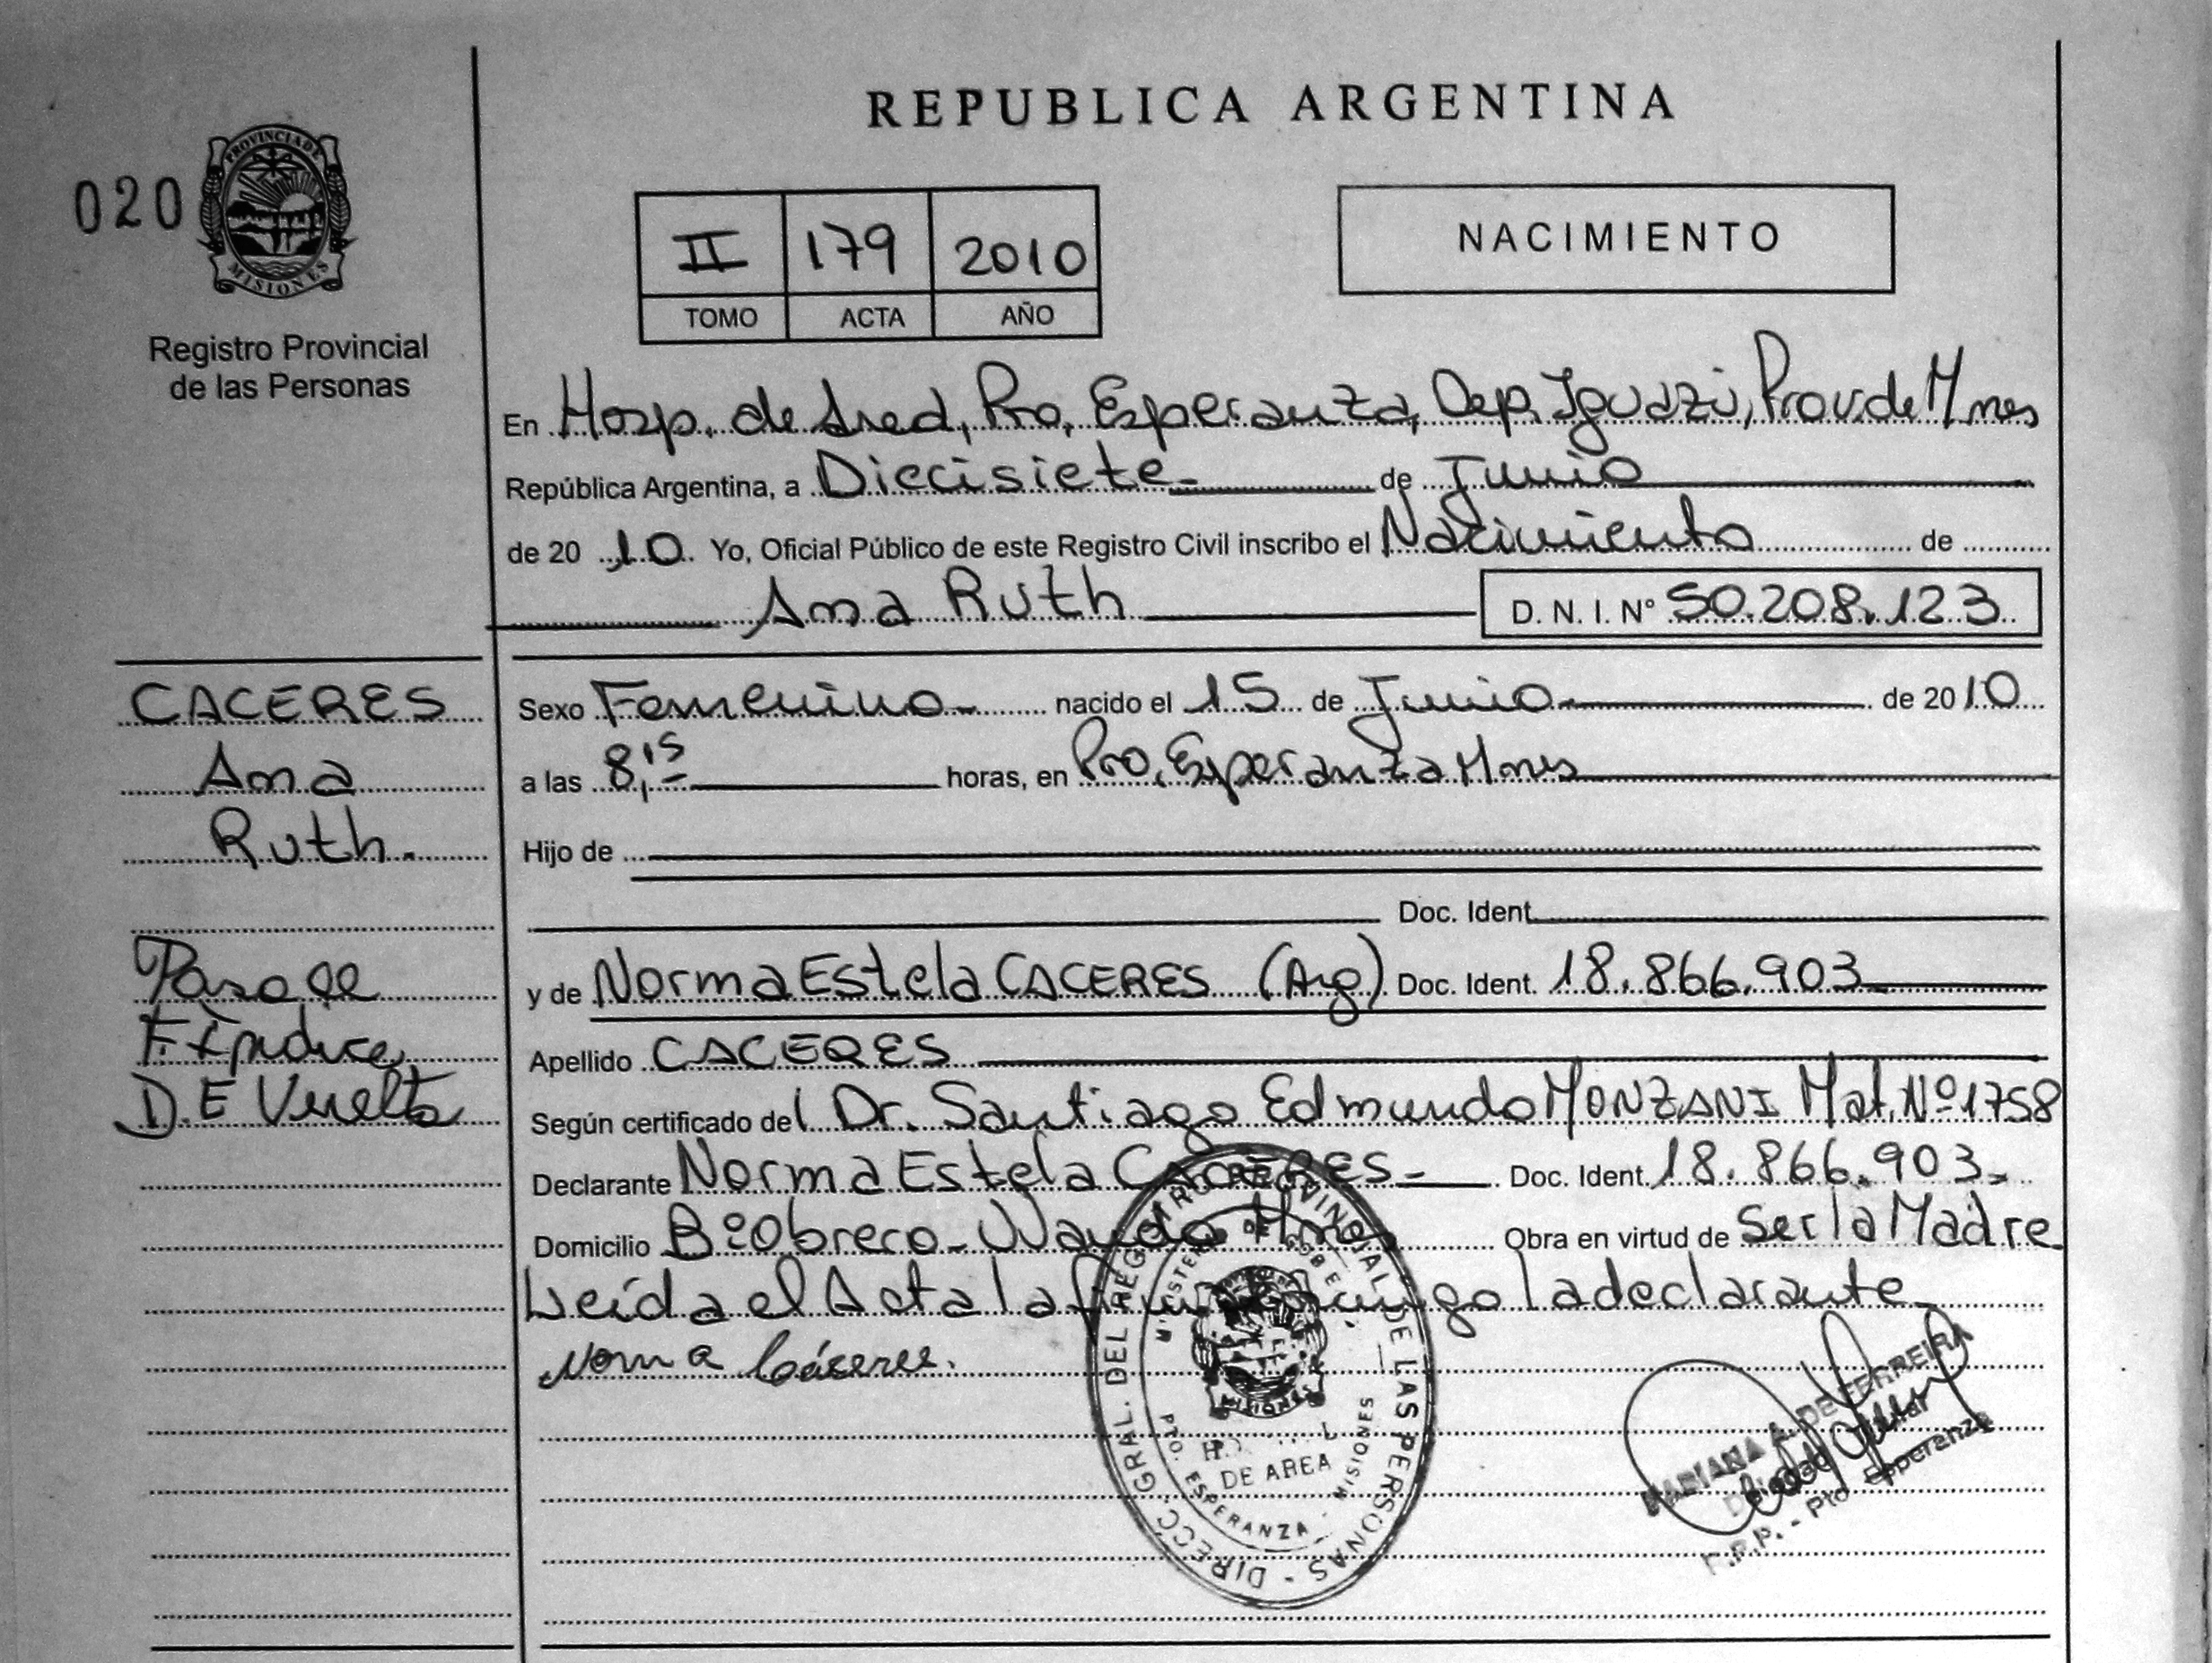 REPUBLICA ARGENTINA
020
PROVINCIA DE
MISIONES
Registro Provincial
de las Personas
II 179 2010
TOMO ACTA AÑO
NACIMIENTO
En Hosp. de Area, Pto. Esperanza, Dep. Iguazú, Prov. de Mnes
República Argentina, a Diecisiete de Junio
de 20 10 Yo, Oficial Público de este Registro Civil inscribo el Nacimiento de
Ana Ruth D. N. I. Nº 50.208.123
CACERES
Ana
Ruth.
Sexo Femenino nacido el 15 de Junio de 2010
a las 8,15 horas, en Pto. Esperanza Mnes
Hijo de
Doc. Ident.
y de Norma Estela CACERES (Arg) Doc. Ident. 18.866.903
Apellido CACERES
D.E Vuelta
Según certificado del Dr. Santiago Edmundo MONZANI Mat. Nº 1758
Declarante Norma Estela CACERES Doc. Ident. 18.866.903
Domicilio Bº Obrero - Wanda Mnes Obra en virtud de Ser la Madre
Leída el Acta la firma conmigo la declarante
Norma Cáceres.
DIRECC. GRAL. DEL REGISTRO PROVINCIAL DE LAS PERSONAS
DE AREA
PTO. ESPERANZA - MISIONES
MISIONES
MARIANA A. DE FERREIRA
R.P.P. - Pto Esperanza